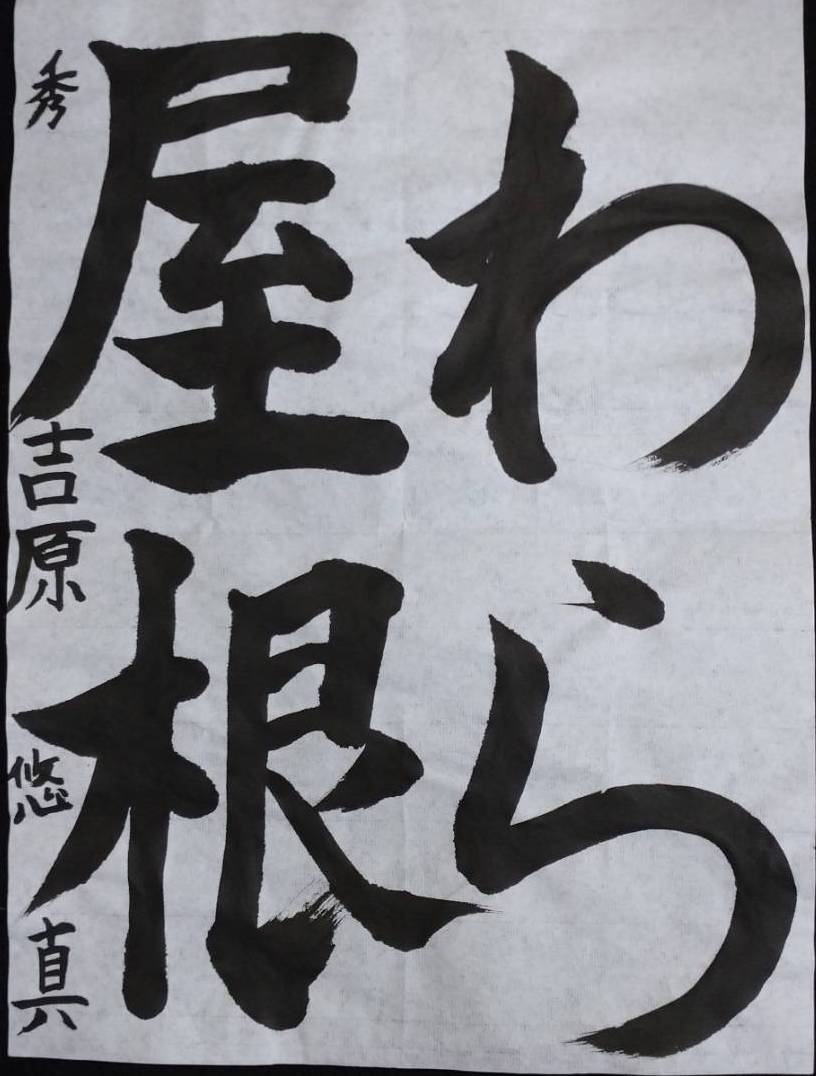 わら
屋根
秀 吉原 悠真